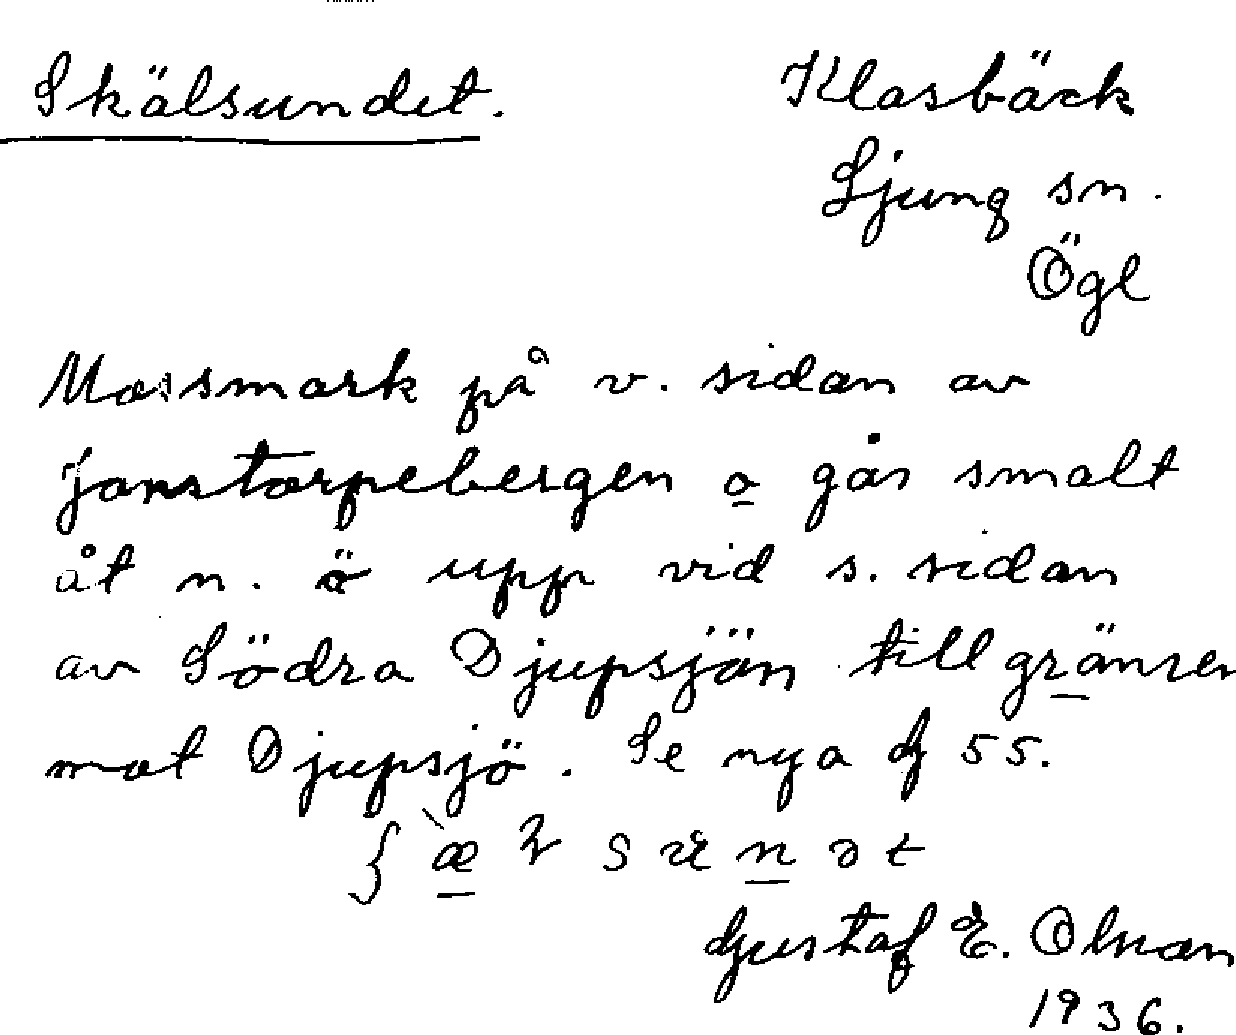 Skälsundet.
Klasbäck
Ljung sn.
Ögl
Mossmark på v. sidan av
Janstorpebergen o går smalt
åt n. ö upp vid s. sidan
av Södra Djupsjön till gränsen
mot Djupsjö. Se nya dj 55.
Gustaf E. Olman
1936.